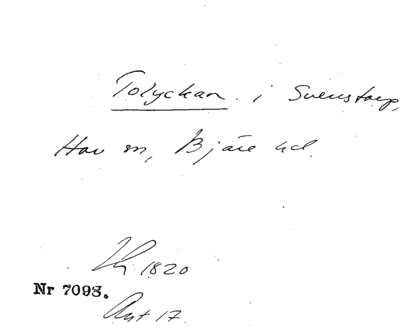 Tolyckan i Svenstorp,
Hov sn, Bjäre hd.
1820
Nr 7098.
Ant 17.